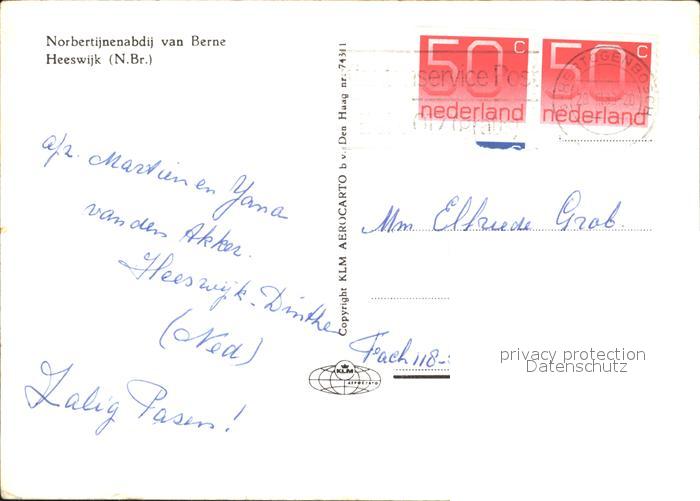 Norbertijnenabdij van Berne
Heeswijk (N.Br.)
50 C
nederland
50 C
nederland
'S-HERTOGENBOSCH
afz. Martien en Yana
van den Akker.
Heeswijk-Dinther
(Ned)
Zalig Pasen!
Copyright KLM AEROCARTO b.v. Den Haag nr. 74311
KLM
AEROCARTO
Mm Elfriede Grob.
Fach 118-
privacy protection
Datenschutz